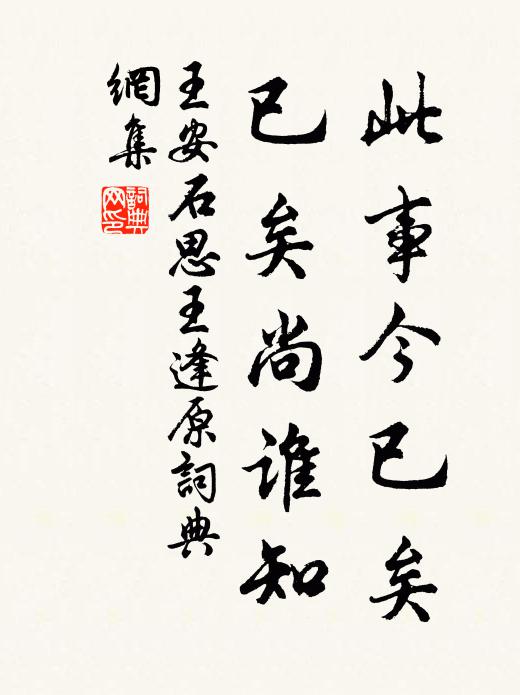 此事今已矣
已矣尚谁知
王安石思王逢原詞典
網集
詞典网印